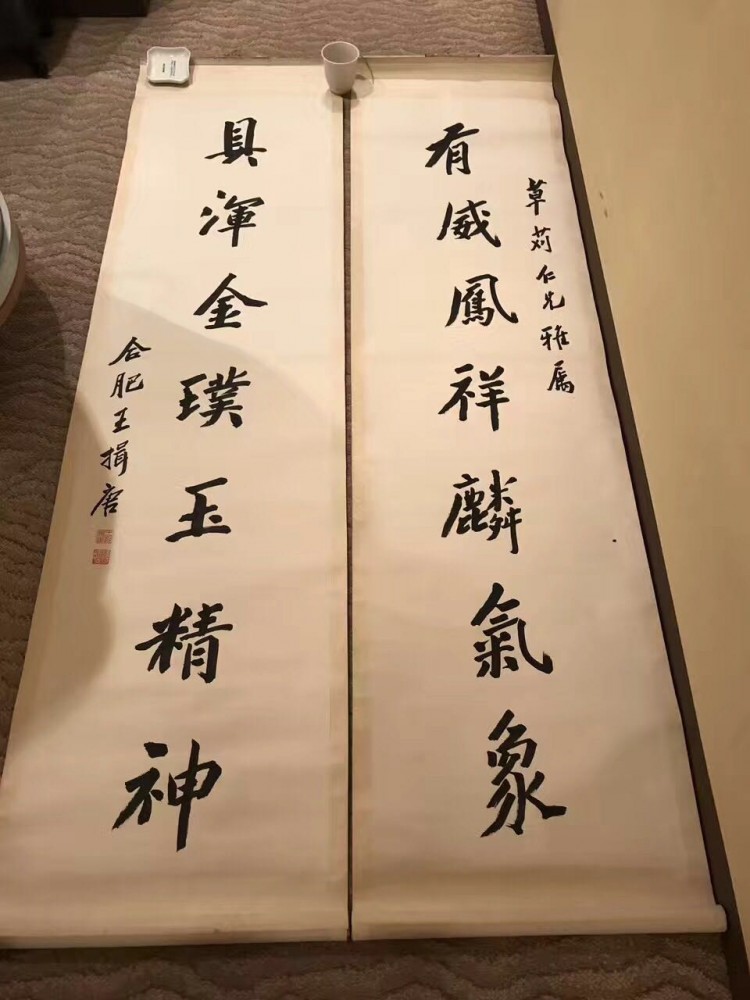 草苅仁兄雅属
有威鳳祥麟氣象
具渾金璞玉精神
合肥王揖唐